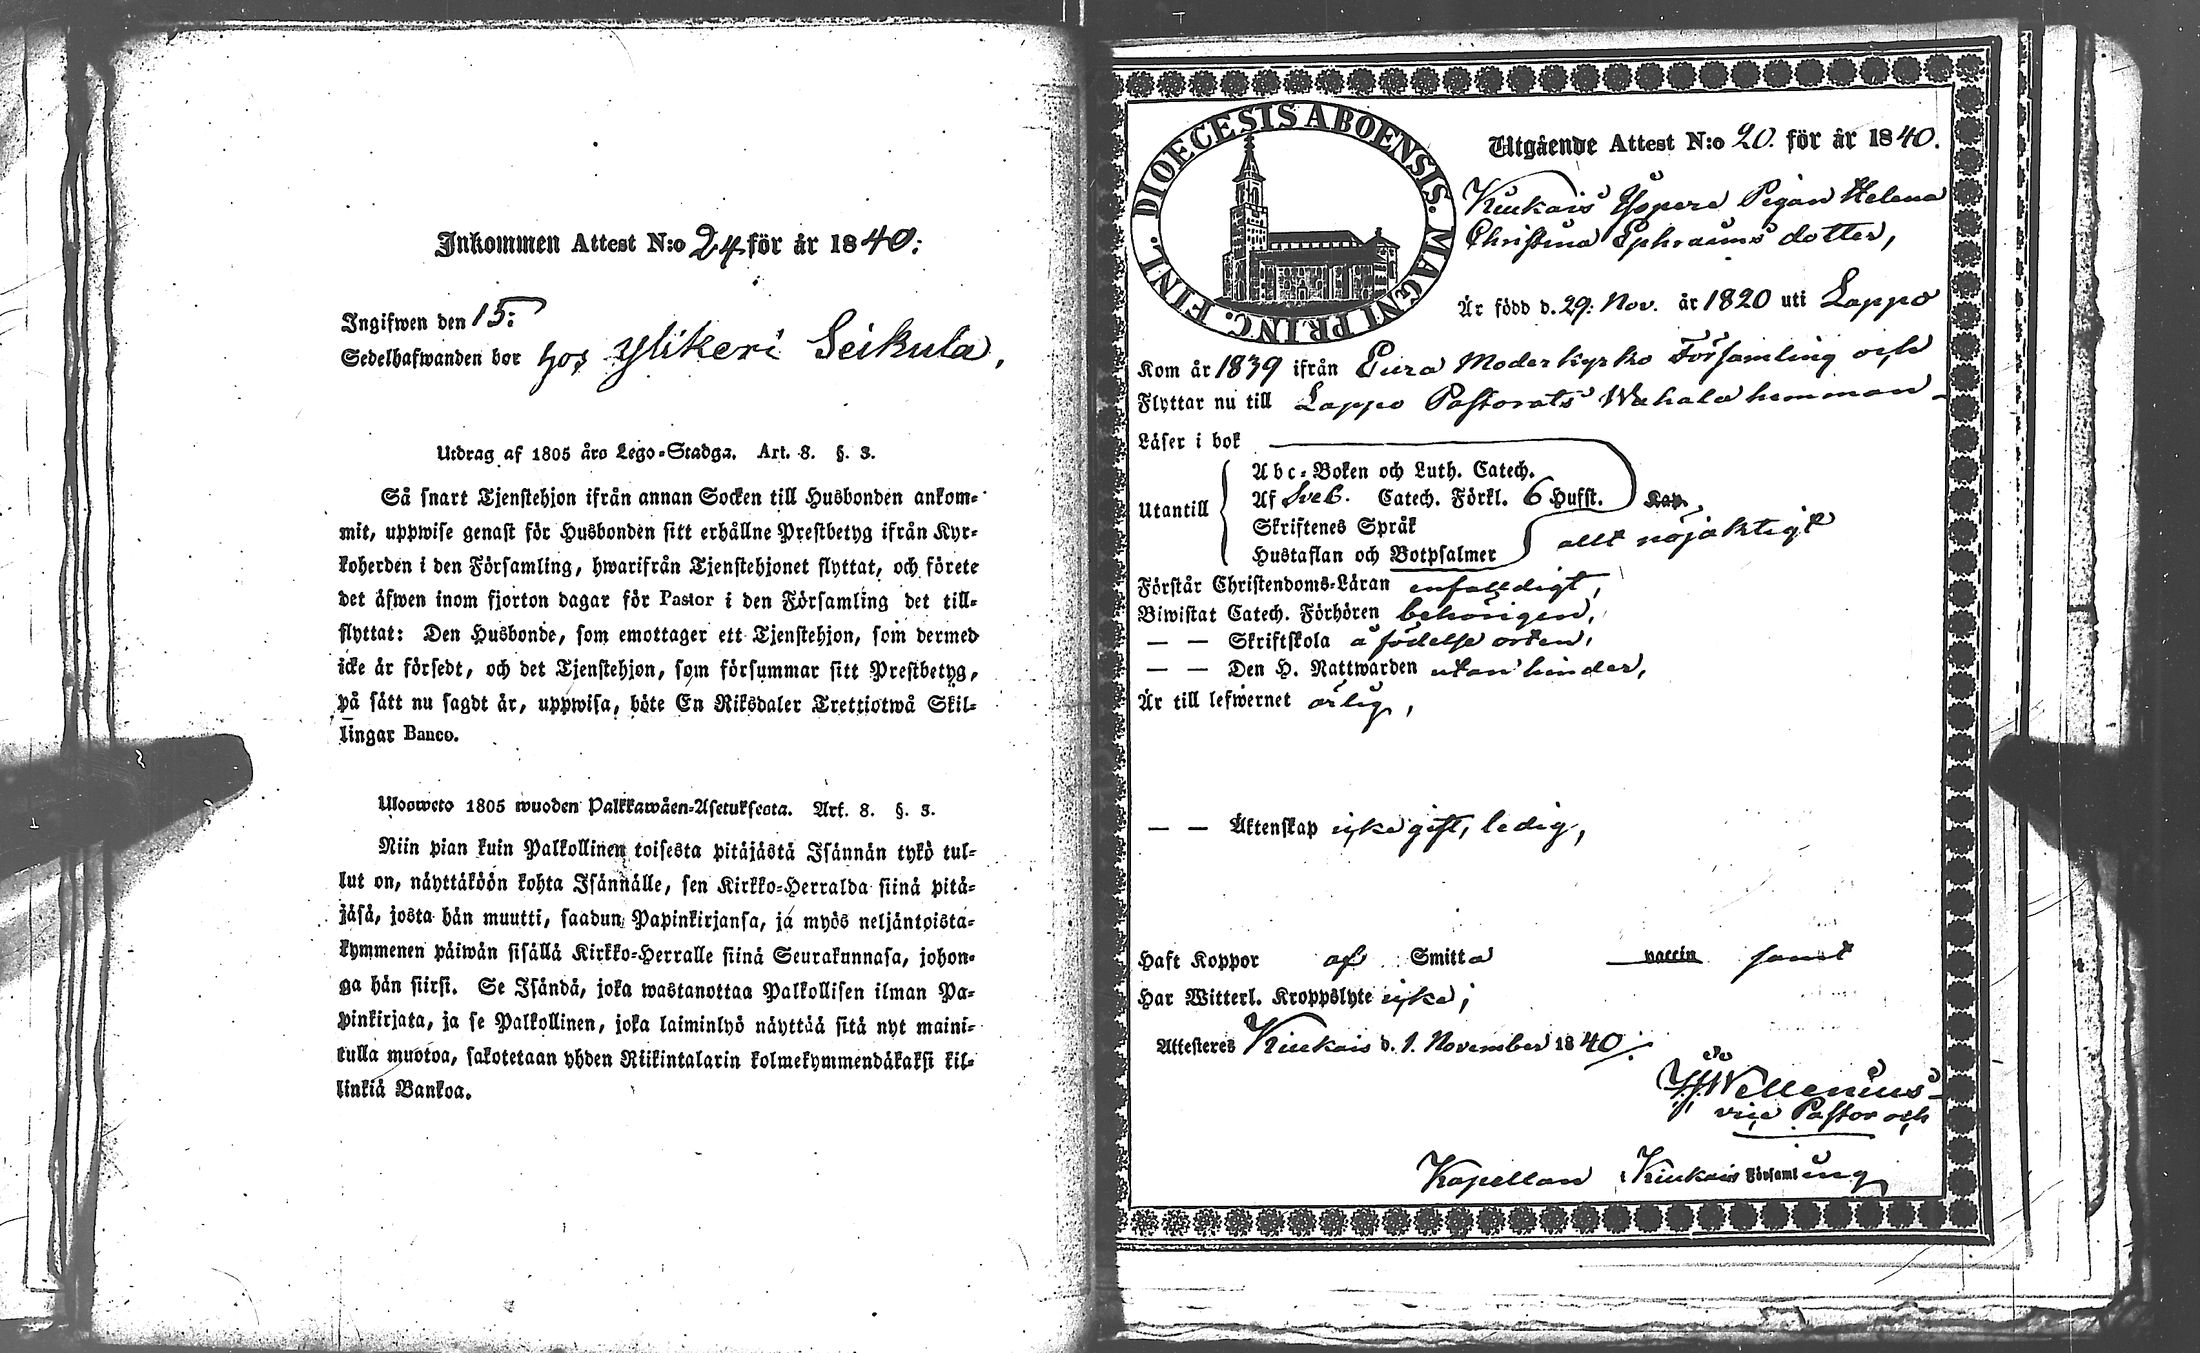 Inkommen Attest N:o 24 för år 1840:
Ingifwen den 15:
Sedelhafwanden bor hos Ylikeri Seikula,
Utdrag af 1805 års Lego-Stadga. Art. 8. §. 3.
Så snart Tjenstehjon ifrån annan Socken till Husbonden ankom-
mit, uppwise genast för Husbonden sitt erhållne Prestbetyg ifrån Kyr-
koherden i den Församling, hwarifrån Tjenstehjonet flyttat, och förete
det äfwen inom fjorton dagar för Pastor i den Församling det till-
flyttat: Den Husbonde, som emottager ett Tjenstehjon, som dermed
icke är försedt, och det Tjenstehjon, som försummar sitt Prestbetyg,
på sätt nu sagdt är, uppwisa, böte En Riksdaler Trettiotwå Skil-
lingar Banco.
Ulosweto 1805 wuoden Palkkawäen-Asetuksesta. Art. 8. §. 3.
Niin pian kuin Palkollinen toisesta pitäjästä Isännän tykö tul-
lut on, näyttäköön kohta Isännälle, sen Kirkko-Herralda siinä pitä-
jäsä, josta hän muutti, saadun Papinkirjansa, ja myös neljäntoista-
kymmenen päiwän sisällä Kirkko-Herralle siinä Seurakunnasa, johon-
ga hän siirsi. Se Isändä, joka wastanottaa Palkollisen ilman Pa-
pinkirjata, ja se Palkollinen, joka laiminlyö näyttää sitä nyt maini-
tulla muotoa, sakotetaan yhden Riikintalarin kolmekymmendäkaksi kil-
linkiä Bankoa.
DIOECESIS ABOENSIS. MAGNI PRINC. FINL.
Utgående Attest N:o 20. för år 1840.
Kiukais Yppere Pigan Helena
Christina Ephraims dotter,
Är född d. 29. Nov. år 1820 uti Lappo
Kom år 1839 ifrån Eura Moderkyrko Församling och
Flyttar nu till Lappo Pastorats Wahala hemman
Läser i bok
Utantill
Abc-Boken och Luth. Catech.
Af Sveb. Catech. Förkl. 6 Hufst. Kap.
Skriftenes Språk
Hustaflan och Botpsalmer
allt nöjaktigt
Förstår Christendoms-Läran enfalldigt,
Biwistat Catech. Förhören behörigen,
— — Skriftskola å födelse orten,
— — Den H. Nattwarden utan hinder,
Är till lefwernet ärlig,
— — Äktenskap icke gift, ledig,
Haft Koppor af Smitta vaccin samt
Har Witterl. Kroppslyte icke;
Attesteres Kiukais d. 1. November 1840
Wellenius
vice Pastor och
Kapellan i Kiukais Församling